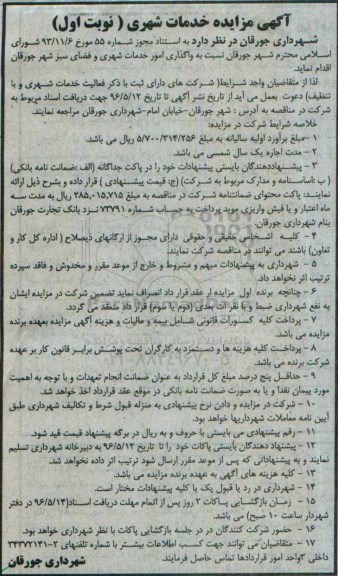 آگهی مزایده خدمات شهری ( نوبت اول)
شهرداری جورقان در نظر دارد به استناد مجوز شماره ۵۵ مورخ ۹۳/۱۱/۶ شورای
اسلامی محترم شهر جورقان نسبت به واگذاری امور خدمات شهری و فضای سبز شهر جورقان
اقدام نماید.
لذا از متقاضیان واجد شرایط( شرکت های دارای ثبت با ذکر فعالیت خدمات شهری و یا
تنظیف) دعوت بعمل می آید از تاریخ نشر آگهی تا تاریخ ۹۶/۵/۱۲ جهت دریافت اسناد مربوط به
شرکت در مناقصه به آدرس : شهر جورقان-خیابان امام-شهرداری جورقان مراجعه نمایند.
خلاصه شرایط شرکت در مزایده:
۱ -مبلغ برآورد اولیه سالیانه به مبلغ ۵/۷۰۰/۳۱۴/۲۵۶ ریال می باشد.
۲ - مدت اجاره یک سال شمسی می باشد.
۳ - پیشنهاددهندگان بایستی پیشنهادات خود را در پاکت جداگانه (الف :ضمانت نامه بانکی)
( ب :اساسنامه و مدارک مربوط به شرکت) (ج: قیمت پیشنهادی ) قرار داده و بشرح ذیل ارائه
نمایند: پاکت محتوای ضمانتنامه شرکت در مناقصه به مبلغ ۲۸۵,۰۱۵,۷۱۵ ریال به مدت سه
ماه اعتبار و یا فیش واریزی موید پرداخت به حساب شماره ۷۳۷۹۱ نزد بانک تجارت جورقان
بنام شهرداری جورقان.
۴ - کلیه اشخاص حقیقی و حقوقی دارای مجوز از ارگانهای ذیصلاح ( اداره کل کار و
تعاون) باشند می توانند در مناقصه شرکت نمایند.
۵ - شهرداری به پیشنهادات مبهم و مشروط و خارج از موعد مقرر و مخدوش و فاقد سپرده
ترتیب اثر نخواهد داد.
۶ - چنانچه برنده اول مزایده از عقد قرار داد انصراف نماید تضمین شرکت در مزایده ایشان
به نفع شهرداری ضبط و با نفرات بعدی (دوم یا سوم) قرار داد منعقد می گردد.
۷ - پرداخت کلیه کسورات قانونی شامل بیمه و مالیات و هزینه آگهی مزایده بعهده برنده
مزایده می باشد.
۸ - پرداخت کلیه هزینه ها و دستمزد به کارگران تحت پوشش برابر قانون کار بر عهده
شرکت برنده می باشد.
۹ - حداقل پنج درصد مبلغ کل قرارداد به عنوان ضمانت انجام تعهدات و با توجه به اهمیت
مورد پیمان نقدا و یا به صورت ضمانت نامه بانکی در موقع عقد قرارداد اخذ خواهد شد.
۱۰ - شرکت در مزایده و دادن نرخ پیشنهادی به منزله قبول شرط و تکالیف شهرداری طبق
آیین نامه معاملات شهرداریها خواهد بود.
۱۱ - رقم پیشنهادی می بایستی با حروف و به ریال در برگه پیشنهاد قیمت قید شود.
۱۲ - پیشنهاد دهندگان بایستی پاکات خود را تا تاریخ ۹۶/۵/۱۲ به دبیرخانه شهرداری تسلیم
نمایند و به پیشنهاداتی که پس از موعد مقرر ارسال شود ترتیب اثر داده نخواهد شد.
۱۳ - کلیه هزینه های آگهی به عهده برنده مزایده می باشد.
۱۴ - شهرداری در رد یا قبول یک یا کلیه پیشنهادات مختار است.
۱۵ - زمان بازگشایی پاکات ۲ روز پس از اتمام مهلت دریافت اسناد(۹۶/۵/۱۴ در دفتر
شهردار ساعت ۱۰ صبح) می باشد.
۱۶ - حضور شرکت کنندگان در در جلسه بازگشایی پاکات با نظر شهرداری خواهد بود.
۱۷ - متقاضیان می توانند جهت کسب اطلاعات بیشتر با شماره تلفنهای ۲-۳۴۳۷۲۱۴۱
داخلی ۳واحد امور قراردادها تماس حاصل فرمایند.
شهرداری جورقان